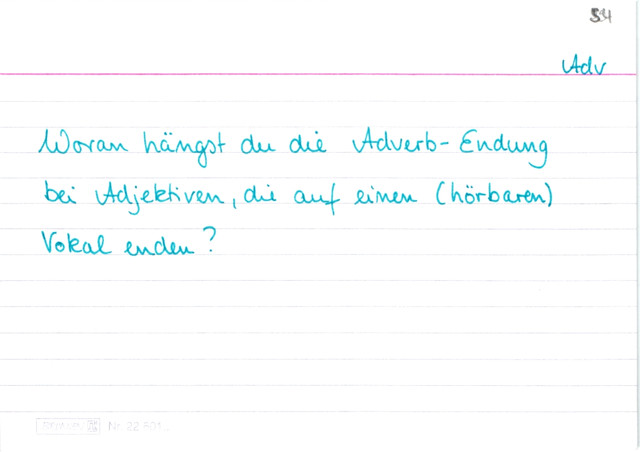 54
Adv
Woran hängst du die Adverb-Endung
bei Adjektiven, die auf einen (hörbaren)
Vokal enden?